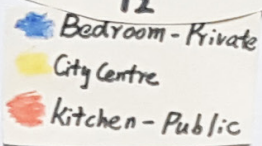 12
Bedroom - Private
City Centre
Kitchen - Public